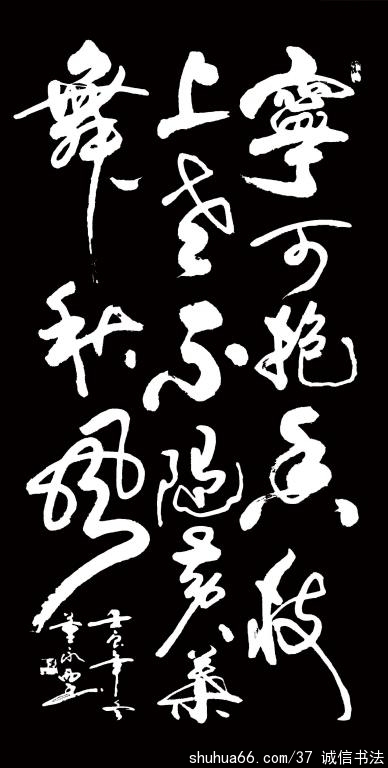 寧可抱香枝
上老不隨黃葉
舞秋風
shuhua66.com/37 诚信书法